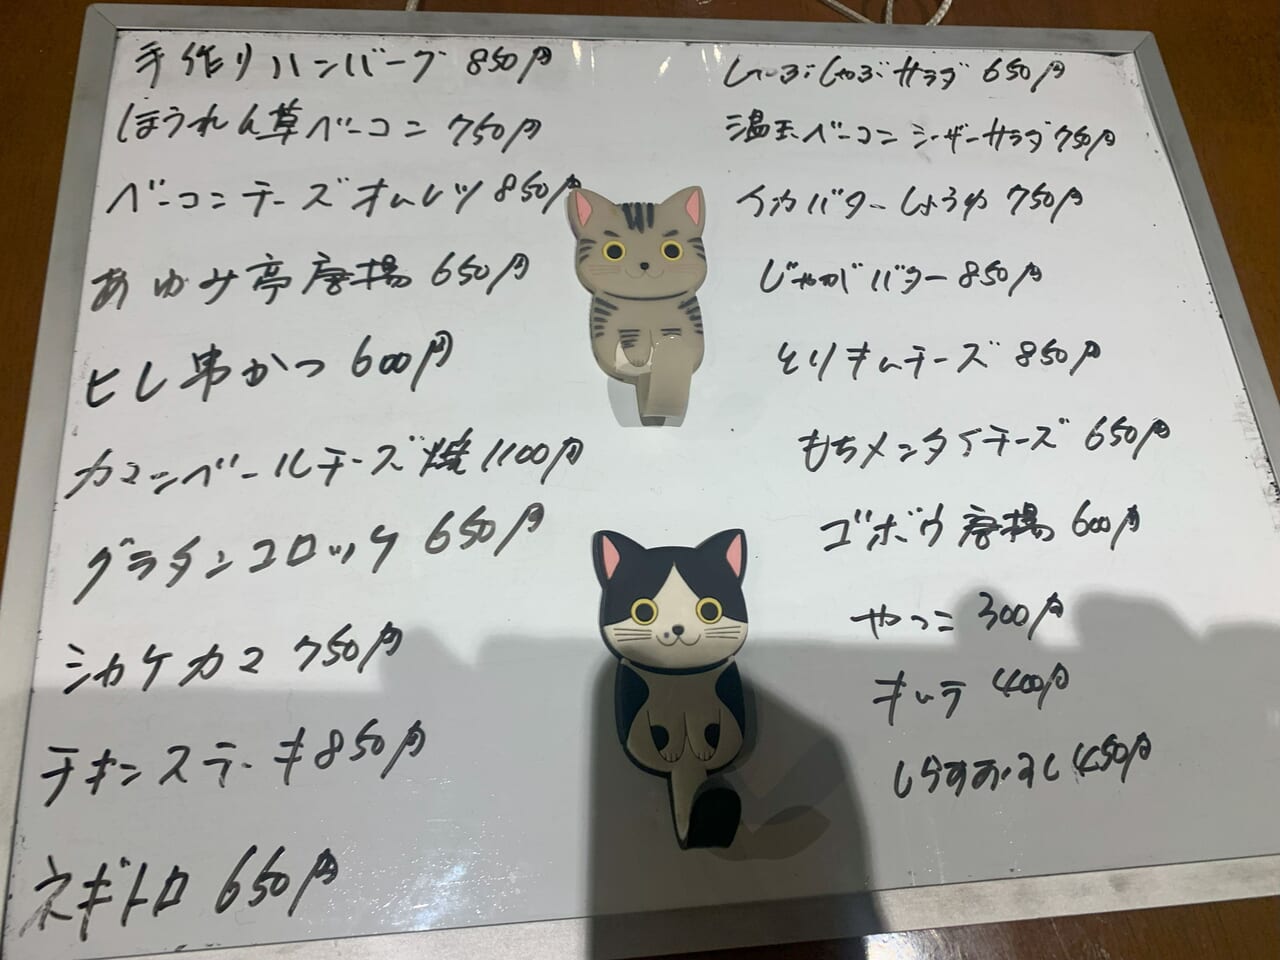 手作りハンバーグ 850円
ほうれん草ベーコン 750円
ベーコンチーズオムレツ 850円
あゆみ亭唐揚 650円
ヒレ串かつ 600円
カマンベールチーズ焼 1100円
グラタンコロッケ 650円
シカケカマ 750円
チキンステーキ 850円
ネギトロ 650円
しゃぶしゃぶサラダ 650円
温玉ベーコンシーザーサラダ 750円
イカバターしょうゆ 750円
じゃがバター 850円
とりキムチーズ 850円
もちメンタイチーズ 650円
ゴボウ唐揚 600円
やっこ 300円
キムチ 400円
しらすおろし 450円